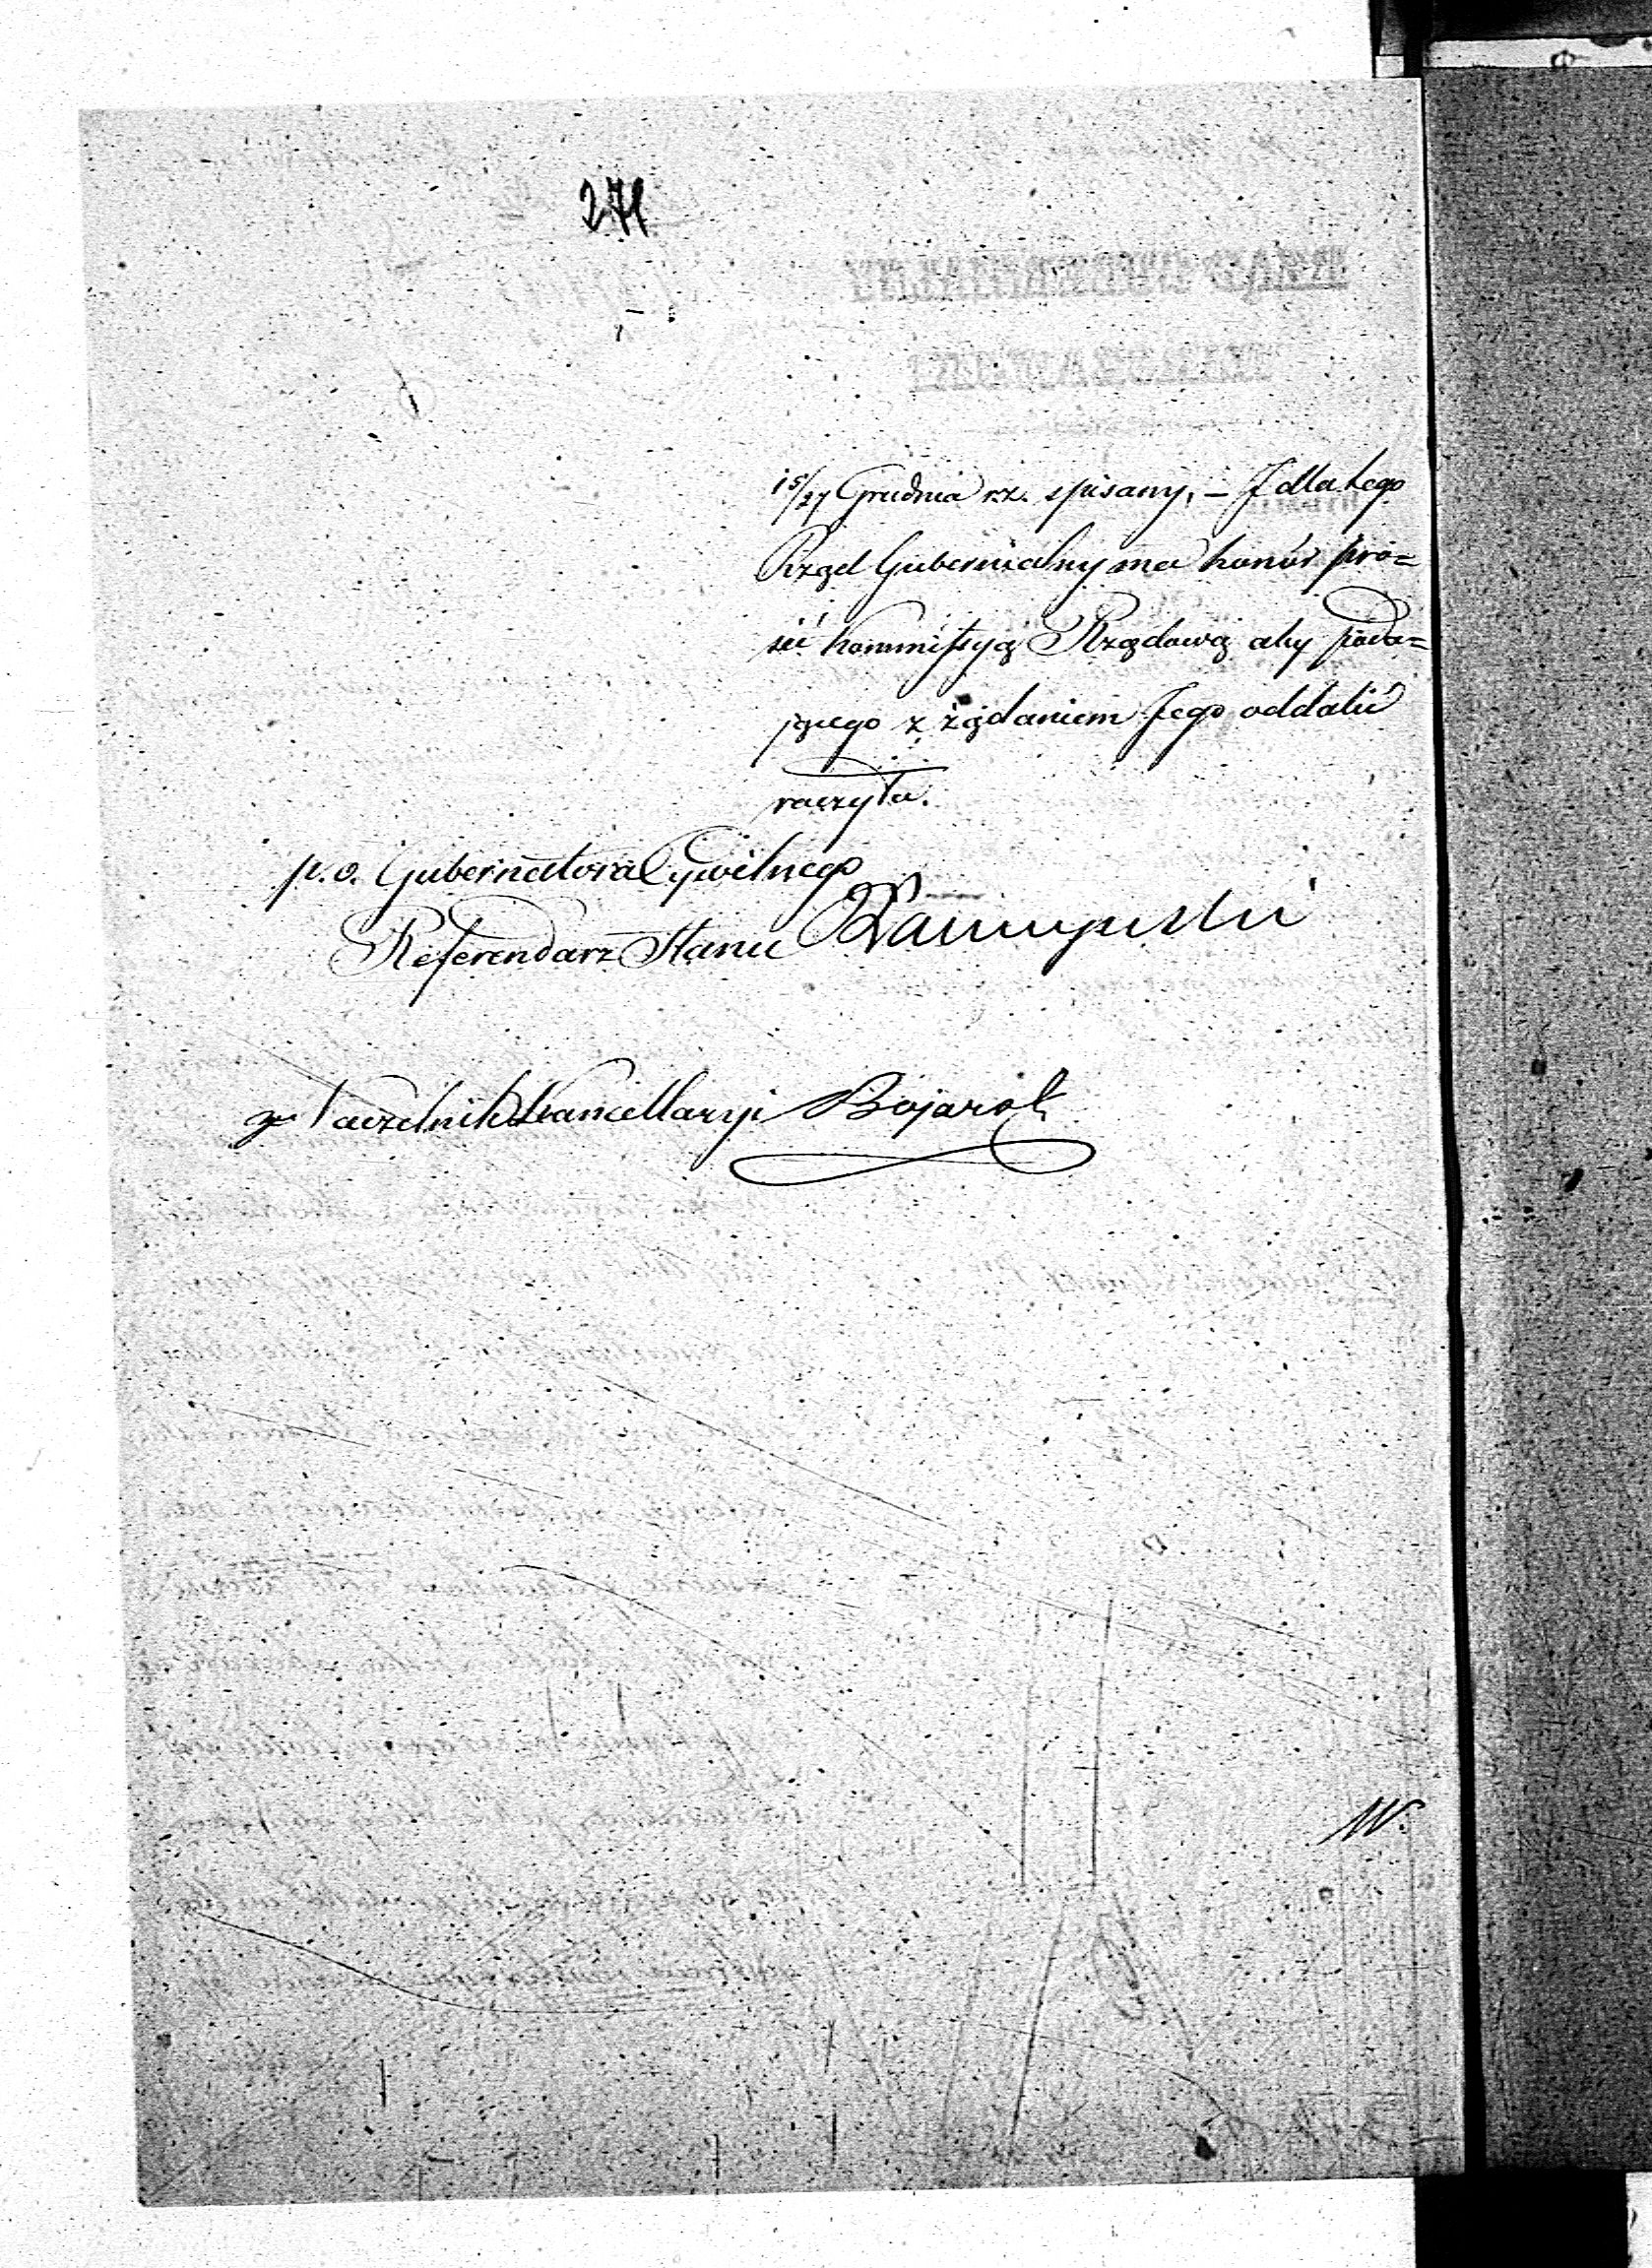 271
15/27 Grudnia r.z. spisany, – I dla tego
Rząd Gubernialny ma honor pro=
sić Kommissyą Rządową aby poda=
jącego z żądaniem Jego oddalić
raczyła.
p.o. Gubernatora Cywilnego
Referendarz Stanu
Naczelnik Kancellaryi Bojarok
W.